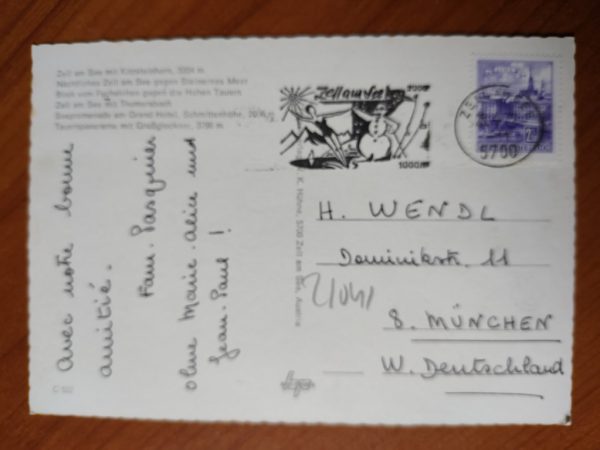 Zell am See mit Kitzsteinhorn, 3204 m
Nächtliches Zell am See gegen Steinernes Meer
Blick vom Fuschertörl gegen die Hohen Tauern
Zell am See mit Thumersbach
Seepromenade am Grand Hotel, Schmittenhöhe,
Tauernpanorama mit Großglockner, 3798 m
Avec notre bonne
amitié.
Fam. Pasquier
ohne Marie-Alice und
Jean-Paul !
C 502
K. Hühne, 5700 Zell am See, Austria
Zell am See
2000
1000m
5700
H. WENDL
Dominikstr. 11
8. MÜNCHEN
W. Deutschland